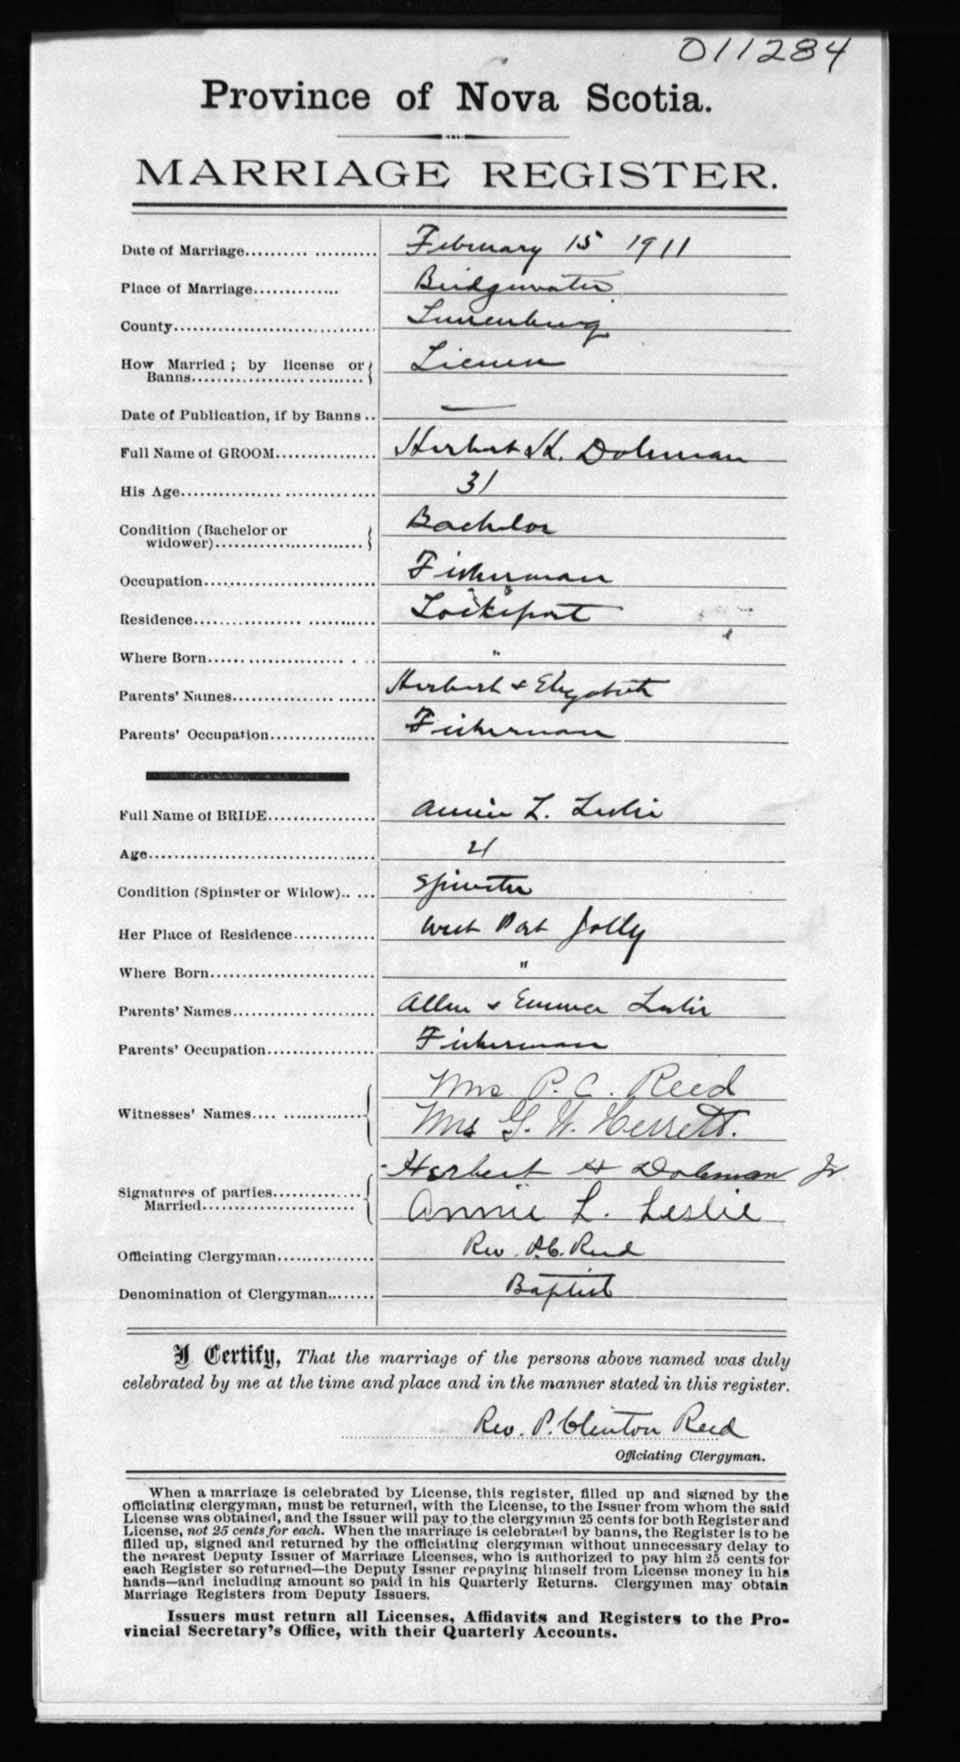 011284
Province of Nova Scotia.
MARRIAGE REGISTER.
Date of Marriage.......... .......... February 15 1911
Place of Marriage............. Bridgewater
County............................. Lunenburg
How Married ; by license or
Banns.................. ......... License
Date of Publication, if by Banns .. —
Full Name of GROOM............... Herbert H. Doleman
His Age.................. ............... 31
Condition (Bachelor or
widower)......................... Bachelor
Occupation.......................... Fisherman
Residence................... ........... Lockeport
Where Born...... ................ . .. "
Parents' Names.................. ...... Herbert & Elizabeth
Parents' Occupation................. Fisherman
Full Name of BRIDE................. Annie L. Leslie
Age.................................... 21
Condition (Spinster or Widow).. ... Spinster
Her Place of Residence............. West Port Jolly
Where Born.......................... "
Parents' Names............. ........... Allen & Emma Leslie
Parents' Occupation................. Fisherman
Mrs P. C. Reed
Witnesses' Names.... ............. Mrs G. W. Herrett.
Herbert H Doleman Jr
Signatures of parties..............
Married......................... Annie L. Leslie
Officiating Clergyman............... Rev. P.C. Reed
Denomination of Clergyman........ Baptist
I Certify, That the marriage of the persons above named was duly
celebrated by me at the time and place and in the manner stated in this register.
Rev. P. Clinton Reed
Officiating Clergyman.
When a marriage is celebrated by License, this register, filled up and signed by the
officiating clergyman, must be returned, with the License, to the Issuer from whom the said
License was obtained, and the Issuer will pay to the clergyman 25 cents for both Register and
License, not 25 cents for each. When the marriage is celebrated by banns, the Register is to be
filled up, signed and returned by the officiating clergyman without unnecessary delay to
the nearest Deputy Issuer of Marriage Licenses, who is authorized to pay him 25 cents for
each Register so returned—the Deputy Issuer repaying himself from License money in his
hands—and including amount so paid in his Quarterly Returns. Clergymen may obtain
Marriage Registers from Deputy Issuers.
Issuers must return all Licenses, Affidavits and Registers to the Pro-
vincial Secretary's Office, with their Quarterly Accounts.